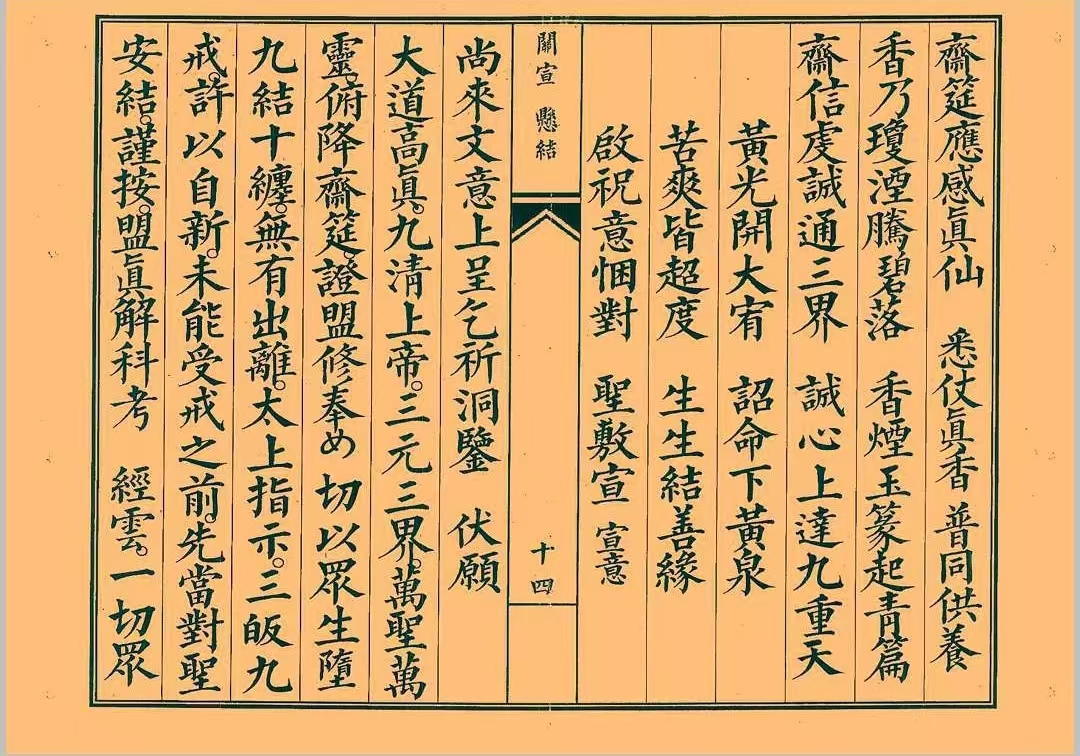 齋筵應感眞仙　悉仗眞香普同供養
香乃瓊湮騰碧落　香煙玉篆起青篇
齋信虔誠通三界　誠心上達九重天
黃光開大宥　詔命下黃泉
苦爽皆超度　生生結善緣
啟祝意悃對　聖敷宣　宣意
關宣　懸結
十四
尚來文意上呈乞祈洞鑒　伏願
大道高眞。九清上帝。三元三界。萬聖萬
靈。俯降齋筵。證盟修奉め　切以眾生墮
九結十纏。無有出離。太上指示。三皈九
戒。許以自新。未能受戒之前。先當對聖
安結。謹按。盟眞解科考　經雲。一切眾